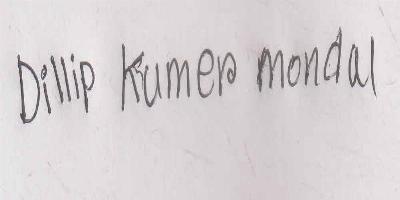 Dillip Kumer mondal